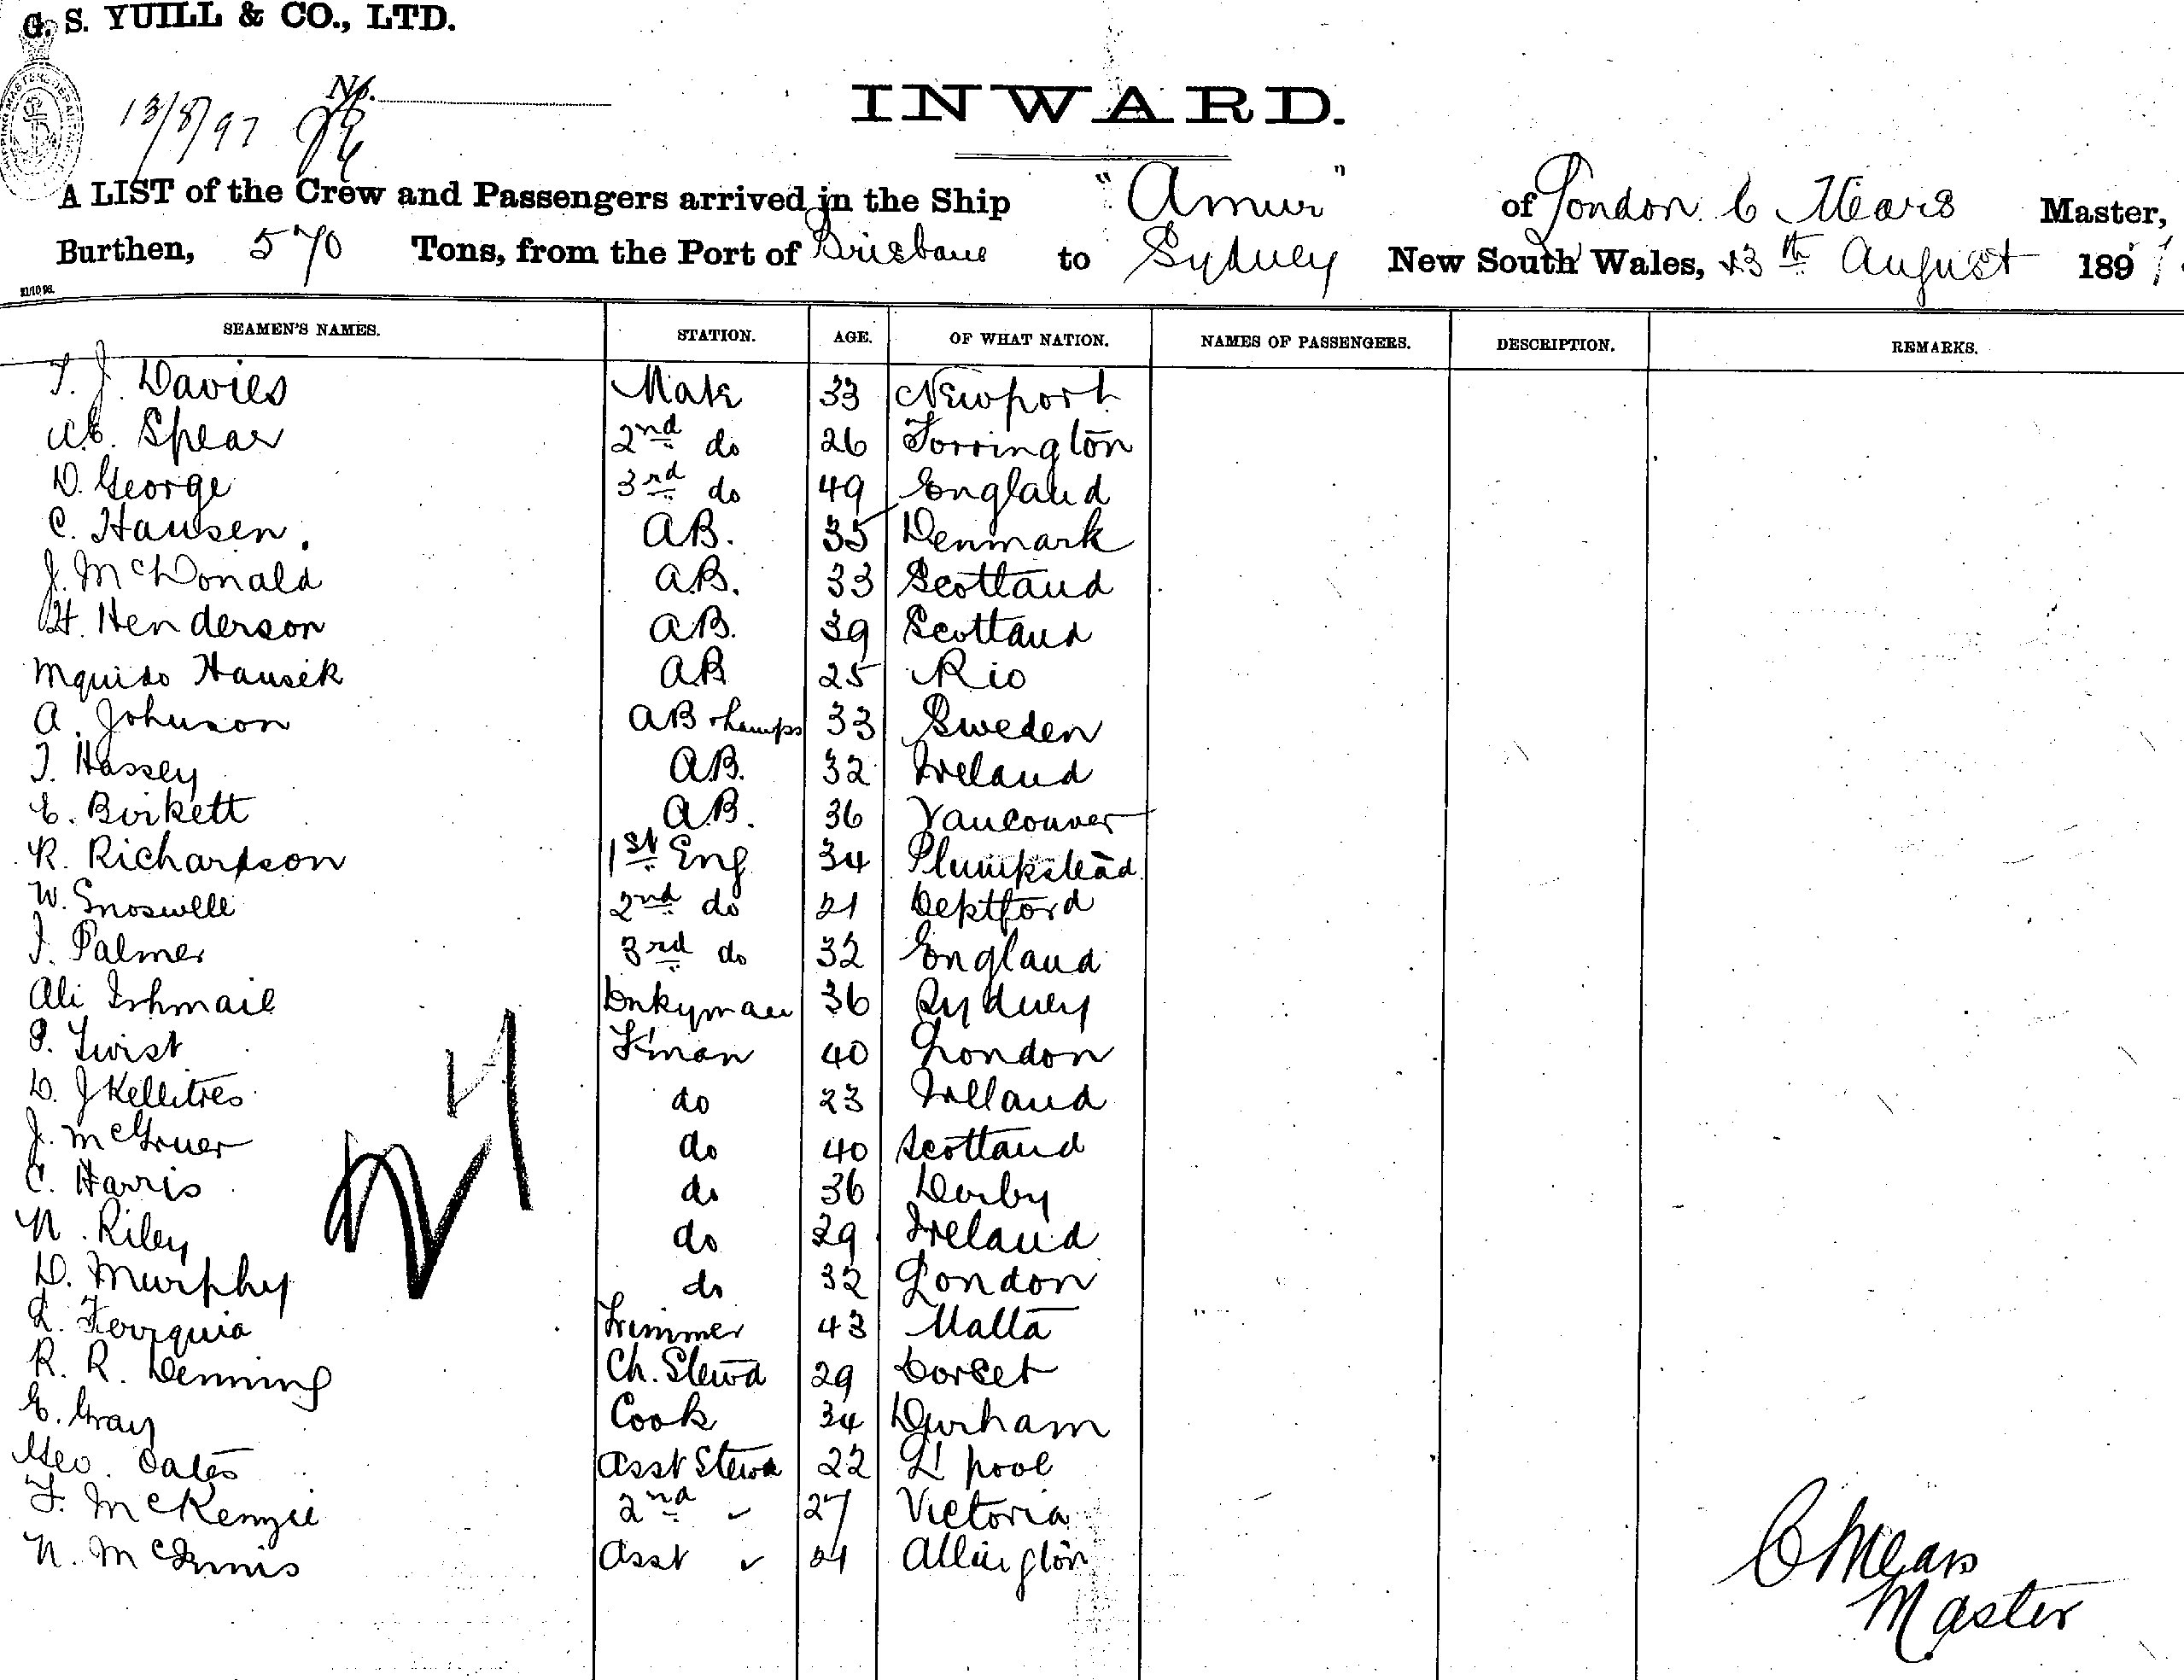 G. S. YUILL & CO., LTD.
No.
13/8/97
INWARD.
A LIST of the Crew and Passengers arrived in the Ship "Amur" of London. C Mears Master,
Burthen, 570 Tons, from the Port of Brisbane to Sydney New South Wales, 13th August 1897
SEAMEN'S NAMES. STATION. AGE. OF WHAT NATION. NAMES OF PASSENGERS. DESCRIPTION. REMARKS.
T. J. Davies Mate 33 Newport
Spear 2nd do 26 Torrington
D. George 3rd do 49 England
C. Hansen. A.B. 35 Denmark
J. McDonald A.B. 33 Scotland
H. Henderson A.B. 39 Scotland
Hansek A.B 25 Rio
A. Johnson AB + Lamps 33 Sweden
T. Hassey A.B. 32 Ireland
E. Birkett A.B. 36 Vancouver
R. Richardson 1st Eng 34 Plumkstead
W. Snoswell 2nd do 21 Deptford
J. Palmer 3rd do 32 England
Ali Ishmail Dnkyman 36 Sydney
P. Twist F'man 40 London
D. J do 23 Ireland
J. McGruer do 40 Scotland
C. Harris do 36 Derby
N. Riley do 29 Ireland
D. Murphy do 32 London
Trimmer 43 Malta
R. R. Denning Ch. Stewd 29 Dorset
E. Gray Cook 34 Durham
Geo. Oates Asst Stewd 22 L'pool
F. McKenzie 2nd 27 Victoria
N. McInnis Asst 21 Allington
C Mears
Master